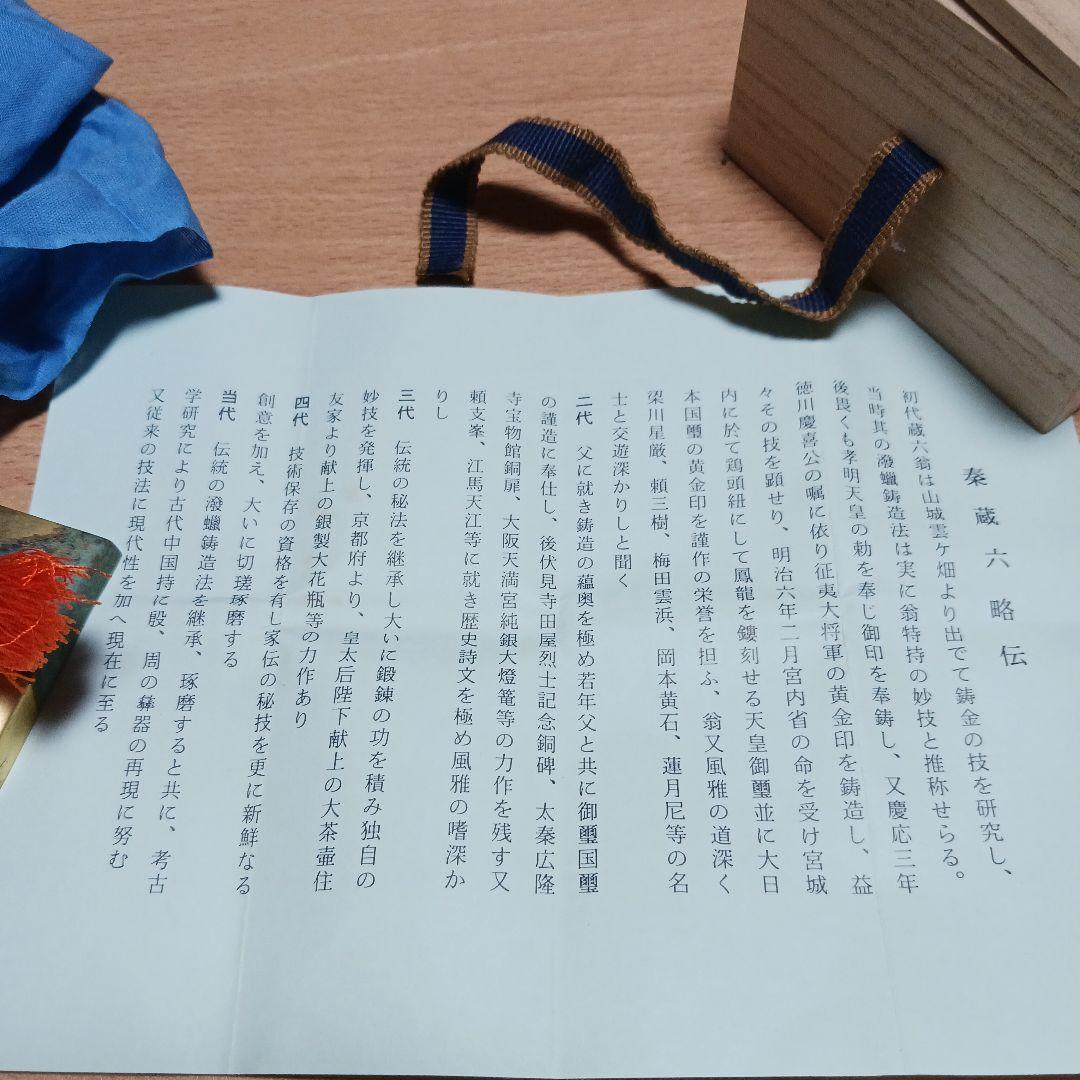 秦蔵六略伝
初代蔵六翁は山城雲ケ畑より出でて鋳金の技を研究し、
当時其の潑蠟鋳造法は実に翁特持の妙技と推称せらる。
後畏くも孝明天皇の勅を奉じ御印を奉鋳し、又慶応三年
徳川慶喜公の嘱に依り征夷大将軍の黄金印を鋳造し、益
々その技を顕せり、明治六年二月宮内省の命を受け宮城
内に於て鶏頭紐にして鳳龍を鏤刻せる天皇御璽並に大日
本国璽の黄金印を謹作の栄誉を担ふ、翁又風雅の道深く
梁川星厳、頼三樹、梅田雲浜、岡本黄石、蓮月尼等の名
士と交遊深かりしと聞く
二代　父に就き鋳造の蘊奥を極め若年父と共に御璽国璽
の謹造に奉仕し、後伏見寺田屋烈士記念銅碑、太秦広隆
寺宝物館銅扉、大阪天満宮純銀大燈篭等の力作を残す又
頼支峯、江馬天江等に就き歴史詩文を極め風雅の嗜深か
りし
三代　伝統の秘法を継承し大いに鍛錬の功を積み独自の
妙技を発揮し、京都府より、皇太后陛下献上の大茶壷住
友家より献上の銀製大花瓶等の力作あり
四代　技術保存の資格を有し家伝の秘技を更に新鮮なる
創意を加え、大いに切瑳琢磨する
当代　伝統の潑蠟鋳造法を継承、琢磨すると共に、考古
学研究により古代中国持に殷、周の彝器の再現に努む
又従来の技法に現代性を加へ現在に至る